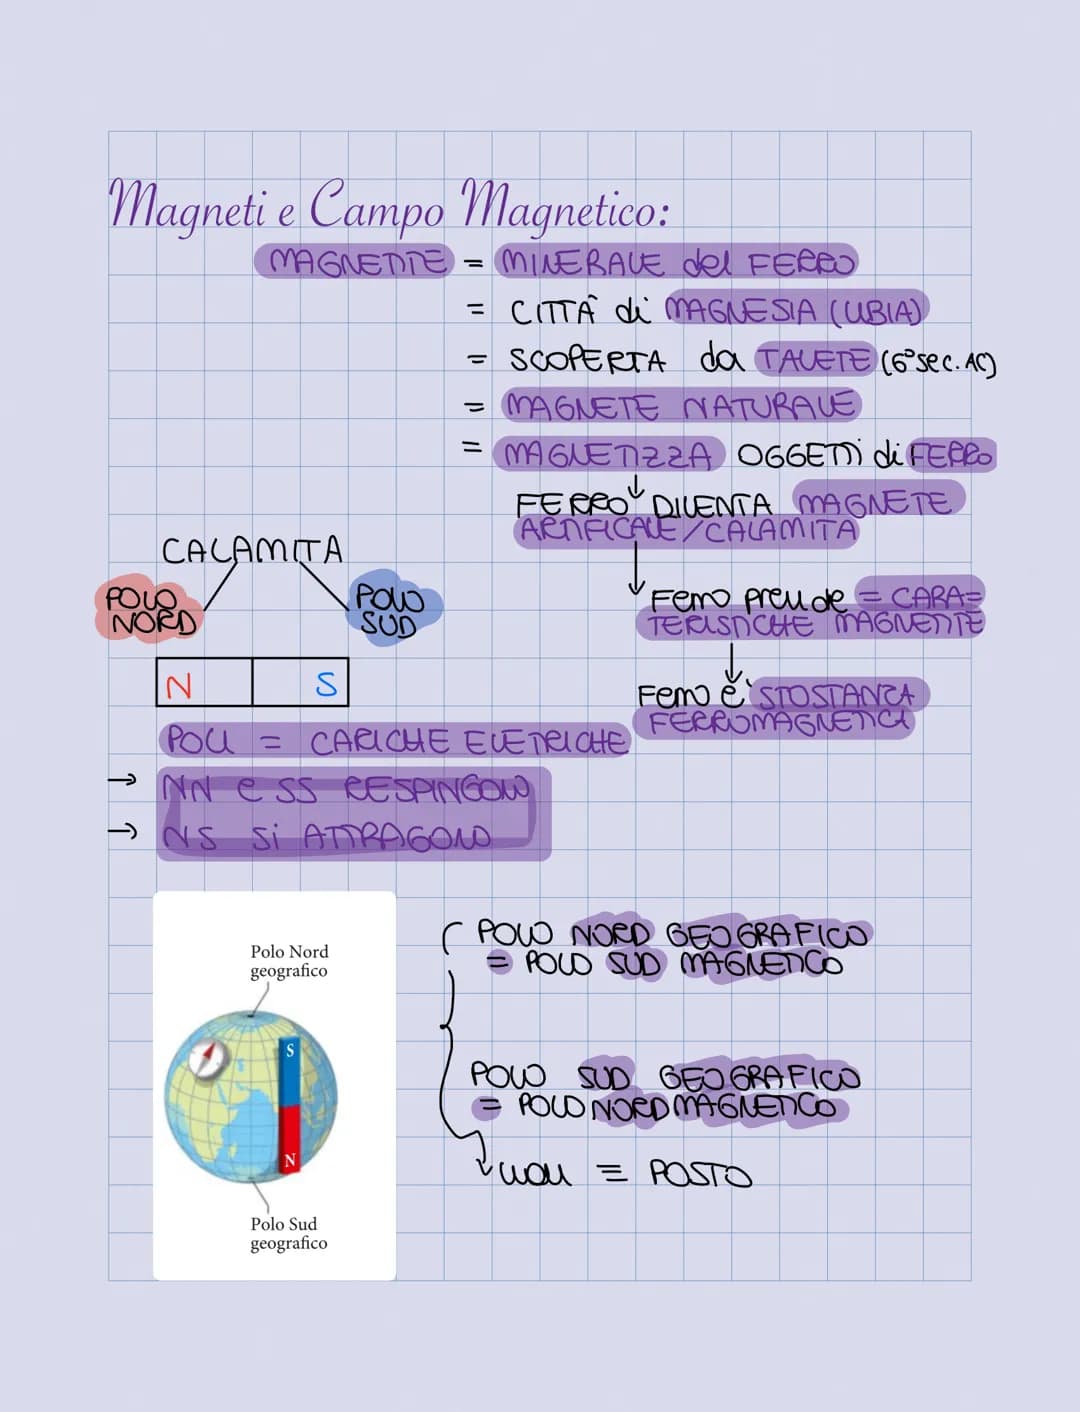 Magneti e Campo Magnetico:
MAGNETITE = MINERALE del FERRO
= CITTÀ di MAGNESIA (LIBIA)
= SCOPERTA da TALETE (6° sec. AC)
= MAGNETE NATURALE
= MAGNETIZZA OGGETTI di FERRO
↓
FERRO DIVENTA MAGNETE
ARTIFICALE/CALAMITA
↓
Ferro prende = CARA=
TERISTICHE MAGNETITE
↓
Ferro è STOSTANZA
FERROMAGNETICA
CALAMITA
POLO
NORD
POLO
SUD
N S
POLI = CARICHE ELETRICHE
→ NN e SS RESPINGONO
→ NS Si ATTRAGONO
Polo Nord
geografico
S
N
Polo Sud
geografico
POLO NORD GEOGRAFICO
= POLO SUD MAGNETICO
POLO SUD GEOGRAFICO
= POLO NORD MAGNETICO
↓ non ≡ POSTO